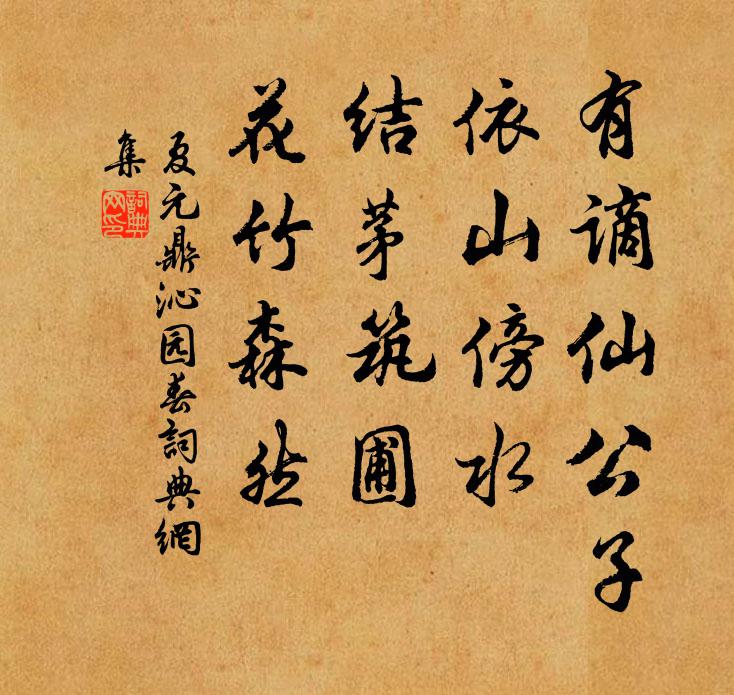 有谪仙公子
依山傍水
结茅筑圃
花竹森然
夏元鼎沁园春詞典網
集
詞典
网印